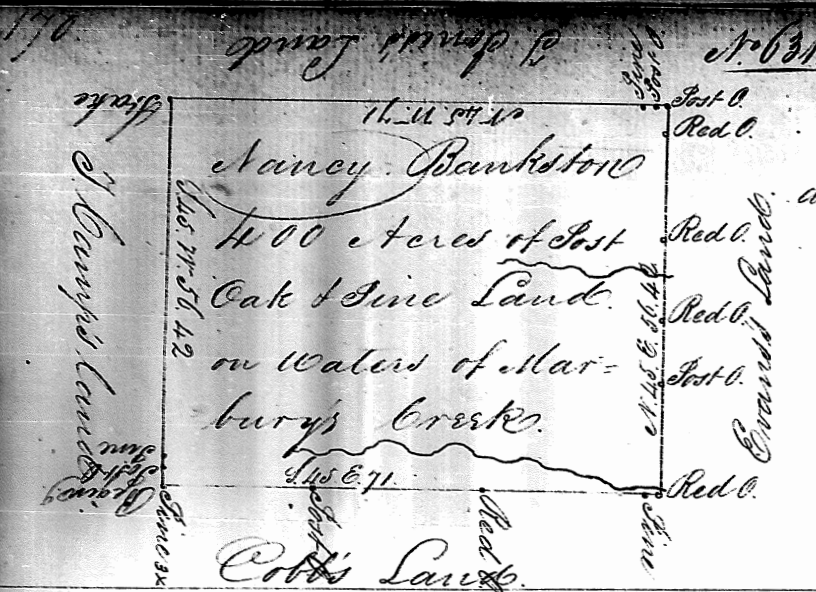 T Jones's Land
Stake
N. 45. W. 71
Pine
Post O.
Post O.
Red O.
Nancy Bankston
400 Acres of Post
Oak & Pine Land
on Waters of Mar=
bury's Creek.
S. 45. W. 56. 42
N. 45. E. 56. 42
Red O.
Red O.
Post O.
Red O.
Evans's Land.
T Camp's Land
Pine
Post O.
Begin'g
Pine 3x
S. 45 E. 71.
Post
Red O.
Pine
Cobb's Land.